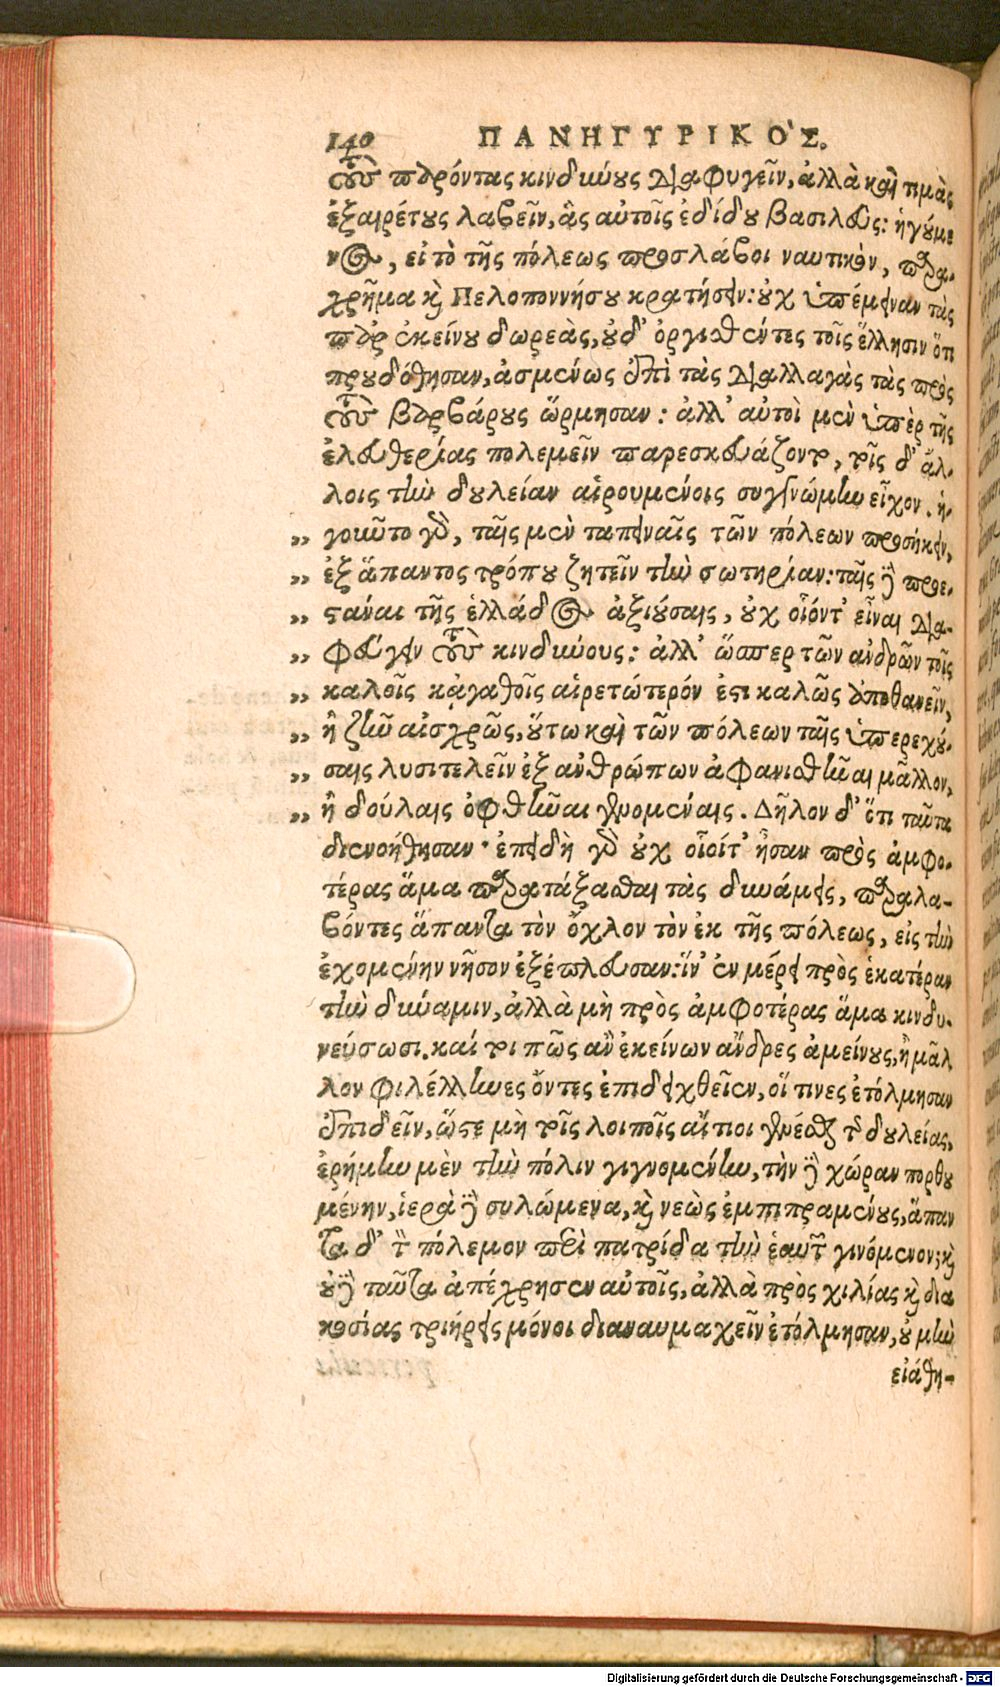 140 ΠΑΝΗΓΥΡΙΚΟ῾Σ.
τοὺς παρόντας κινδύνους διαφυγεῖν, ἀλλὰ καὶ τιμὰς
ἐξαιρέτους λαβεῖν, ἃς αὐτοῖς ἐδίδου βασιλεύς: ἡγούμε
νος, εἰ τὸ τῆς πόλεως προσλάβοι ναυτικὸν, παρα-
χρῆμα καὶ Πελοποννήσου κρατήσειν: οὐχ ὑπέμειναν τὰς
παρ᾽ ἐκείνου δωρεὰς, οὐδ᾽ ὀργισθέντες τοῖς ἕλλησιν ὅτι
προυδόθησαν, ἀσμένως ἐπὶ τὰς διαλλαγὰς τὰς πρὸς
τοὺς βαρβάρους ὥρμησαν: ἀλλ᾽ αὐτοὶ μὲν ὑπὲρ τῆς
ἐλευθερίας πολεμεῖν παρεσκευάζοντο, τοῖς δ᾽ ἄλ-
λοις τὴν δουλείαν αἱρουμένοις συγγνώμην εἶχον. ἡ-
„ γοιῦτο γὰρ, ταῖς μὲν ταπειναῖς τῶν πόλεων προσήκειν,
„ ἐξ ἅπαντος τρόπου ζητεῖν τὴν σωτηρίαν: ταῖς δὲ προε-
„ στάναι τῆς ἑλλάδος ἀξιούσαις, οὐχ οἷόντ᾽ εἶναι δια-
„ φεύγειν τοὺς κινδύνους: ἀλλ᾽ ὥσπερ τῶν ἀνδρῶν τοῖς
„ καλοῖς κἀγαθοῖς αἱρετώτερόν ἐστι καλῶς ἀποθανεῖν,
„ ἢ ζῆν αἰσχρῶς, οὕτω καὶ τῶν πόλεων ταῖς ὑπερεχού-
„ σαις λυσιτελεῖν ἐξ ἀνθρώπων ἀφανισθῆναι μᾶλλον,
„ ἢ δούλαις ὀφθῆναι γενομέναις. Δῆλον δ᾽ ὅτι ταῦτα
διενοήθησαν· ἐπειδὴ γὰρ οὐχ οἷοίτ᾽ ἦσαν πρὸς ἀμφο-
τέρας ἅμα παρατάξασθαι τὰς δυνάμεις, παραλα-
βόντες ἅπαντα τὸν ὄχλον τὸν ἐκ τῆς πόλεως, εἰς τὴν
ἐχομένην νῆσον ἐξέπλευσαν: ἵν᾽ ἐν μέρει πρὸς ἑκατέραν
τὴν δύναμιν, ἀλλὰ μὴ πρὸς ἀμφοτέρας ἅμα κινδυ-
νεύσωσι. καί τοι πῶς ἂν ἐκείνων ἄνδρες ἀμείνους, ἢ μᾶλ
λον φιλέλληνες ὄντες ἐπιδειχθεῖεν, οἵ τινες ἐτόλμησαν
ἐπιδεῖν, ὥστε μὴ τοῖς λοιποῖς αἴτιοι γενέσθαι τῆς δουλείας,
ἐρήμην μὲν τὴν πόλιν γιγνομένην, τὴν δὲ χώραν πορθου
μένην, ἱερὰ δὲ συλώμενα, καὶ νεὼς ἐμπιπραμένους, ἅπαν
τα δ᾽ τὸν πόλεμον περὶ πατρίδα τὴν ἑαυτῶν γινόμενον; καὶ
οὐδὲ ταῦτα ἀπέχρησεν αὐτοῖς, ἀλλὰ πρὸς χιλίας καὶ δια
κοσίας τριήρεις μόνοι διαναυμαχεῖν ἐτόλμησαν, οὐ μὴν
εἰάθη-
Digitalisierung gefördert durch die Deutsche Forschungsgemeinschaft - DFG